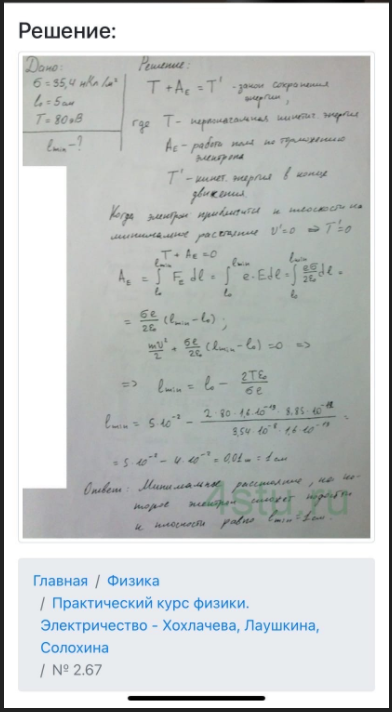 Решение:
Дано:
σ = 35,4 нКл/м²
l₀ = 5 см
T = 80 эВ
lmin - ?
Решение:
T + AE = T' - закон сохранения
энергии,
где T - первоначальная кинетич. энергия
AE - работа поля по торможению
электрона
T' - кинет. энергия в конце
движения.
Когда электрон приблизится к плоскости на
минимальное расстояние υ'=0 ⇒ T'=0
T + AE = 0
AE = ∫l₀lmin FE dl = ∫l₀lmin e·E dl = ∫l₀lmin eσ/2ε₀ dl =
= σe/2ε₀ (lmin - l₀) ;
mυ²/2 + σe/2ε₀ (lmin - l₀) = 0 ⇒
⇒ lmin = l₀ - 2Tε₀/σe
lmin = 5·10⁻² - 2·80·1,6·10⁻¹⁹·8,85·10⁻¹²/3,54·10⁻⁸·1,6·10⁻¹⁹ =
= 5·10⁻² - 4·10⁻² = 0,01 м = 1 см
Ответ: Минимальное расстояние, на ко-
торое электрон сможет подойти
к плоскости равно lmin = 1 см.
4stu.ru
Главная / Физика
/ Практический курс физики.
Электричество - Хохлачева, Лаушкина,
Солохина
/ № 2.67